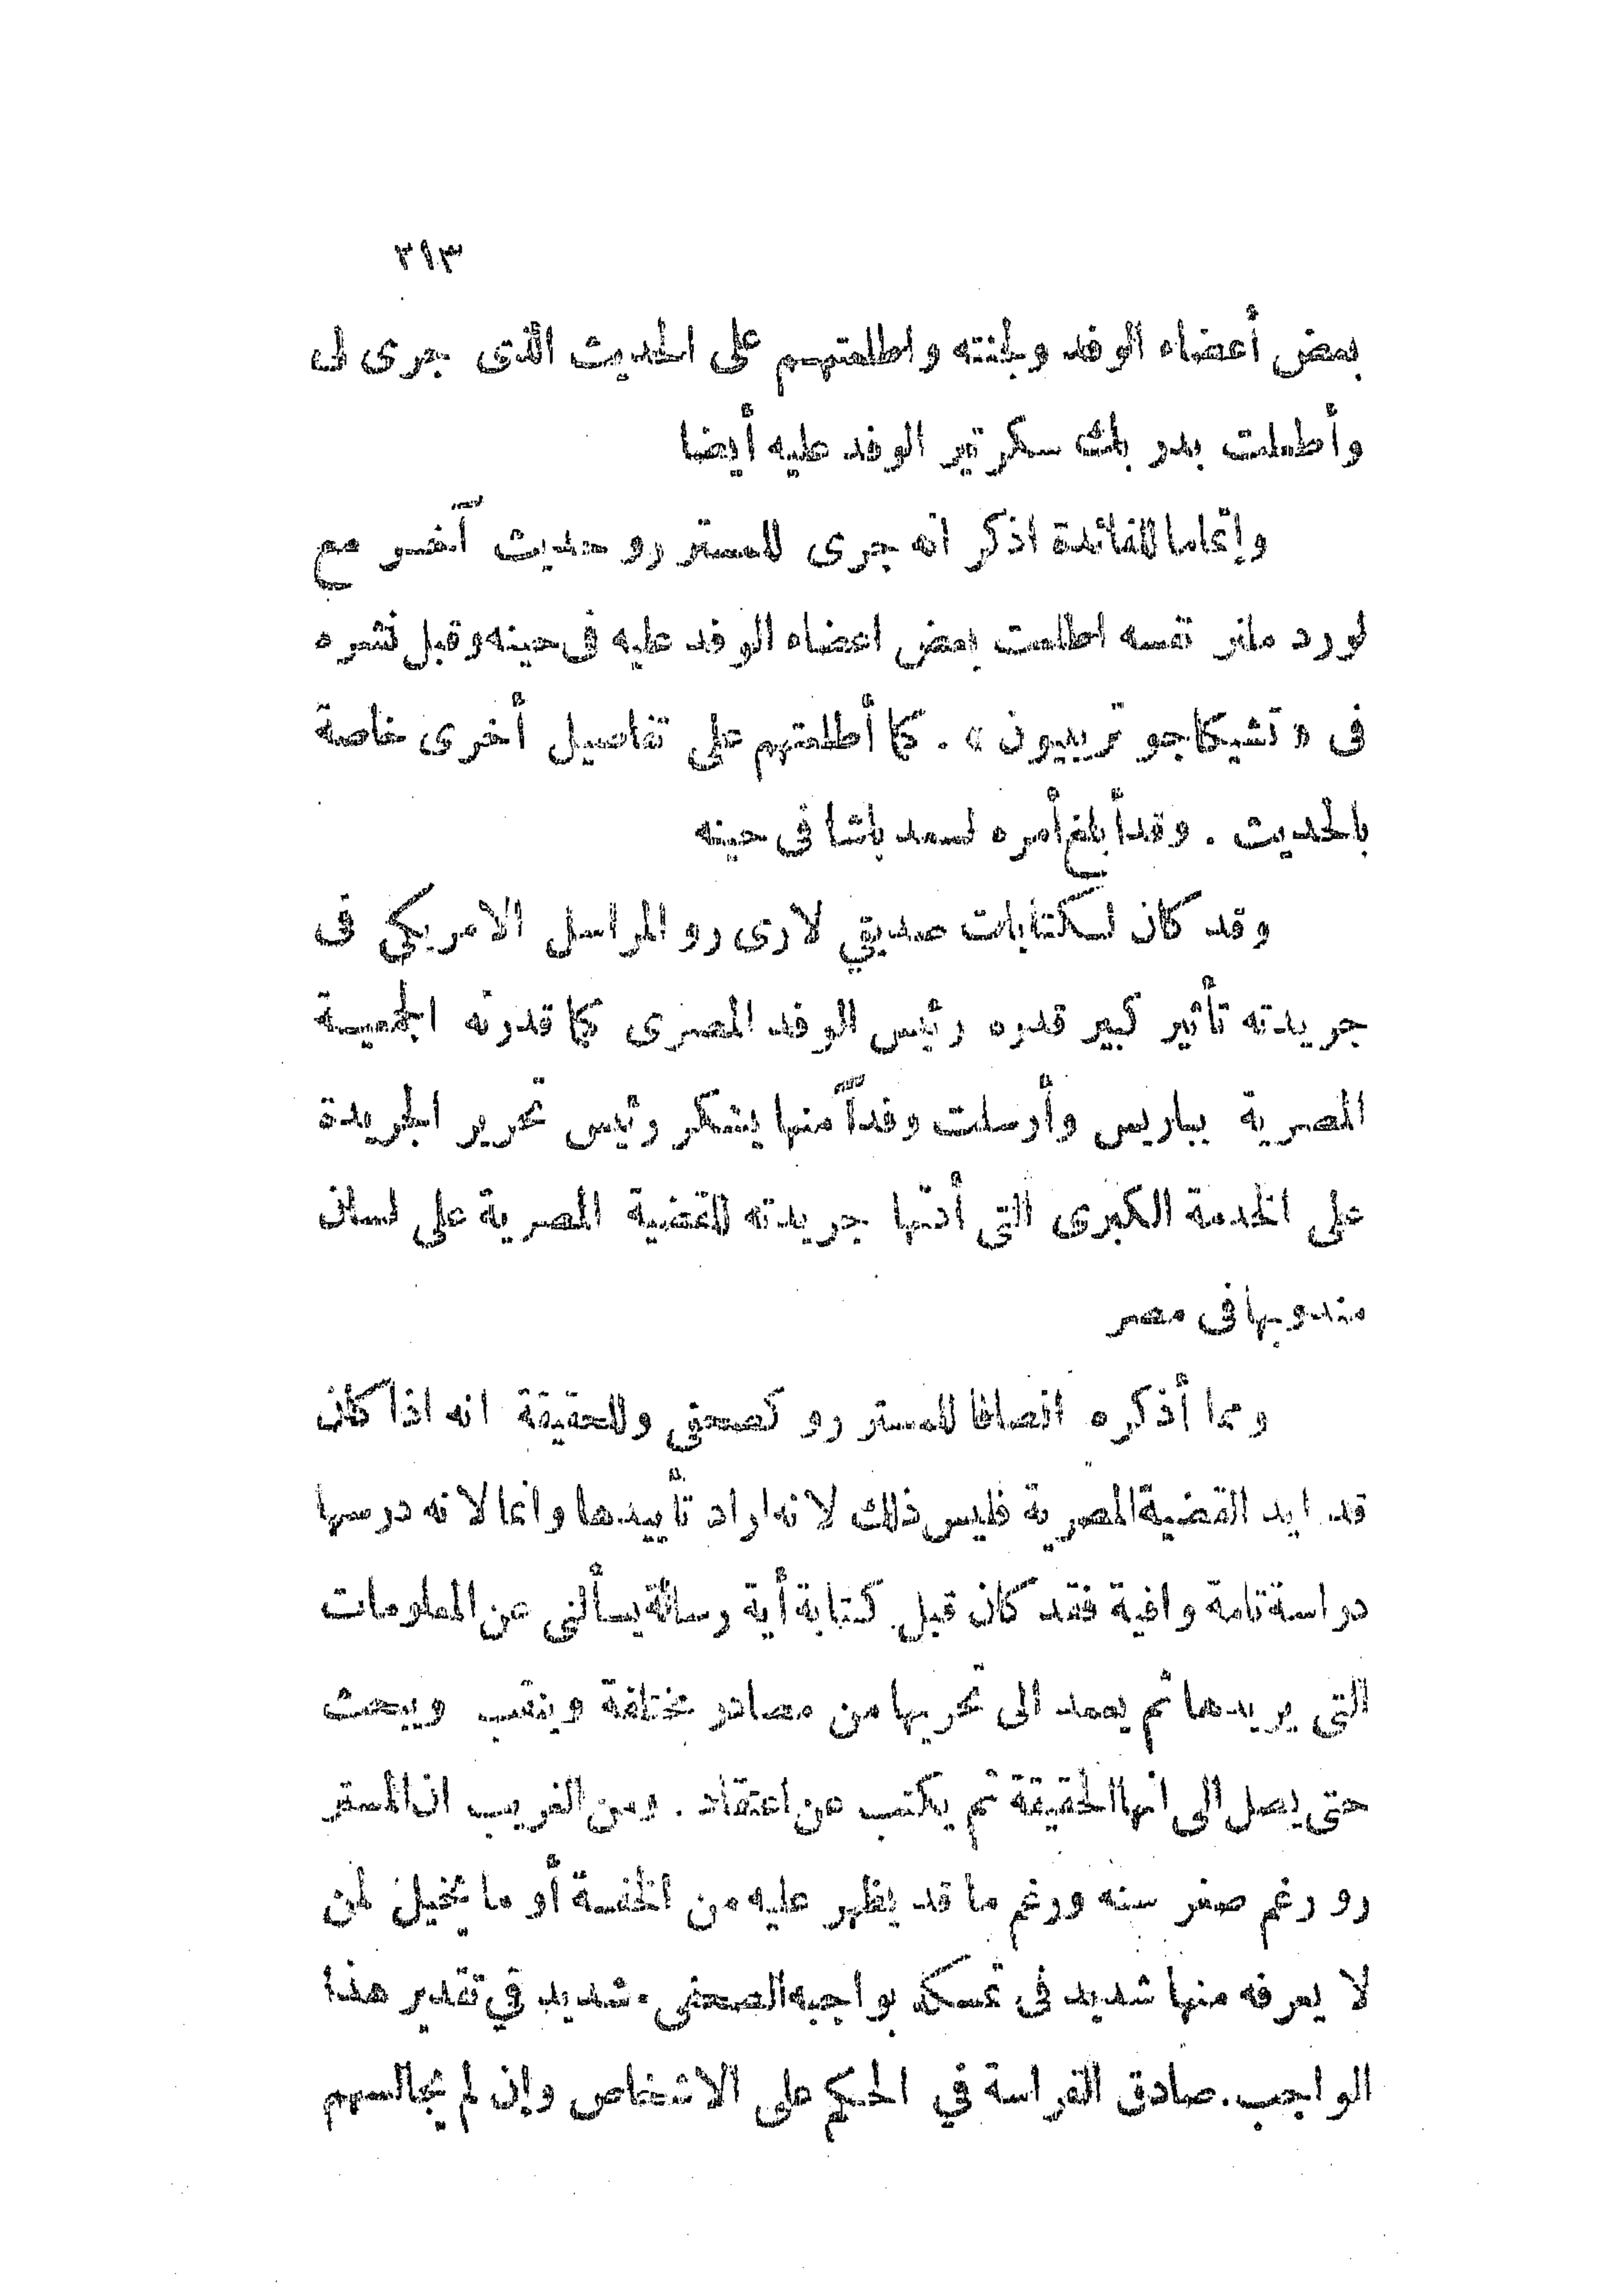 ٢١٣
بعض أعضاء الوفد ولجنته واطلعتهم على الحديث الذى جرى لى
وأطلعت بدر بك سكرتير الوفد عليه أيضا
وإتماما للفائدة اذكر انه جرى للمستر رو حديث آخر مع
لورد ملنر نفسه اطلعت بعض اعضاء الوفد عليه فى حينه وقبل نشره
فى « تشيكاجو تريبيون » . كما أطلعتهم على تفاصيل أخرى خاصة
بالحديث . وقد أبلغ أمره لسعد باشا فى حينه
وقد كان لكتابات صديقي لارى رو المراسل الامريكي فى
جريدته تأثير كبير قدره رئيس الوفد المصرى كما قدرته الجمعية
المصرية بباريس وأرسلت وفداً منها يشكر رئيس تحرير الجريدة
على الخدمة الكبرى التي أدتها جريدته للقضية المصرية على لسان
مندوبها فى مصر
ومما أذكره انصافا للمستر رو كصحفي وللحقيقة انه اذا كان
قد ايد القضية المصرية فليس ذلك لانه اراد تأييدها وانما لانه درسها
دراسة تامة وافية فقد كان قبل كتابة أية رسالة يسألنى عن المعلومات
التى يريدها ثم يعمد الى تحريها من مصادر مختلفة وينقب ويبحث
حتى يصل الى انها الحقيقة ثم يكتب عن اعتقاد . ومن الغريب ان المستر
رو رغم صغر سنه ورغم ما قد يظهر عليه من الخفة أو ما يخيل لمن
لا يعرفه منها شديد فى تمسكه بواجبه الصحفى . شديد في تقدير هذا
الواجب . صادق الفراسة في الحكم على الاشخاص وإن لم يجالسهم